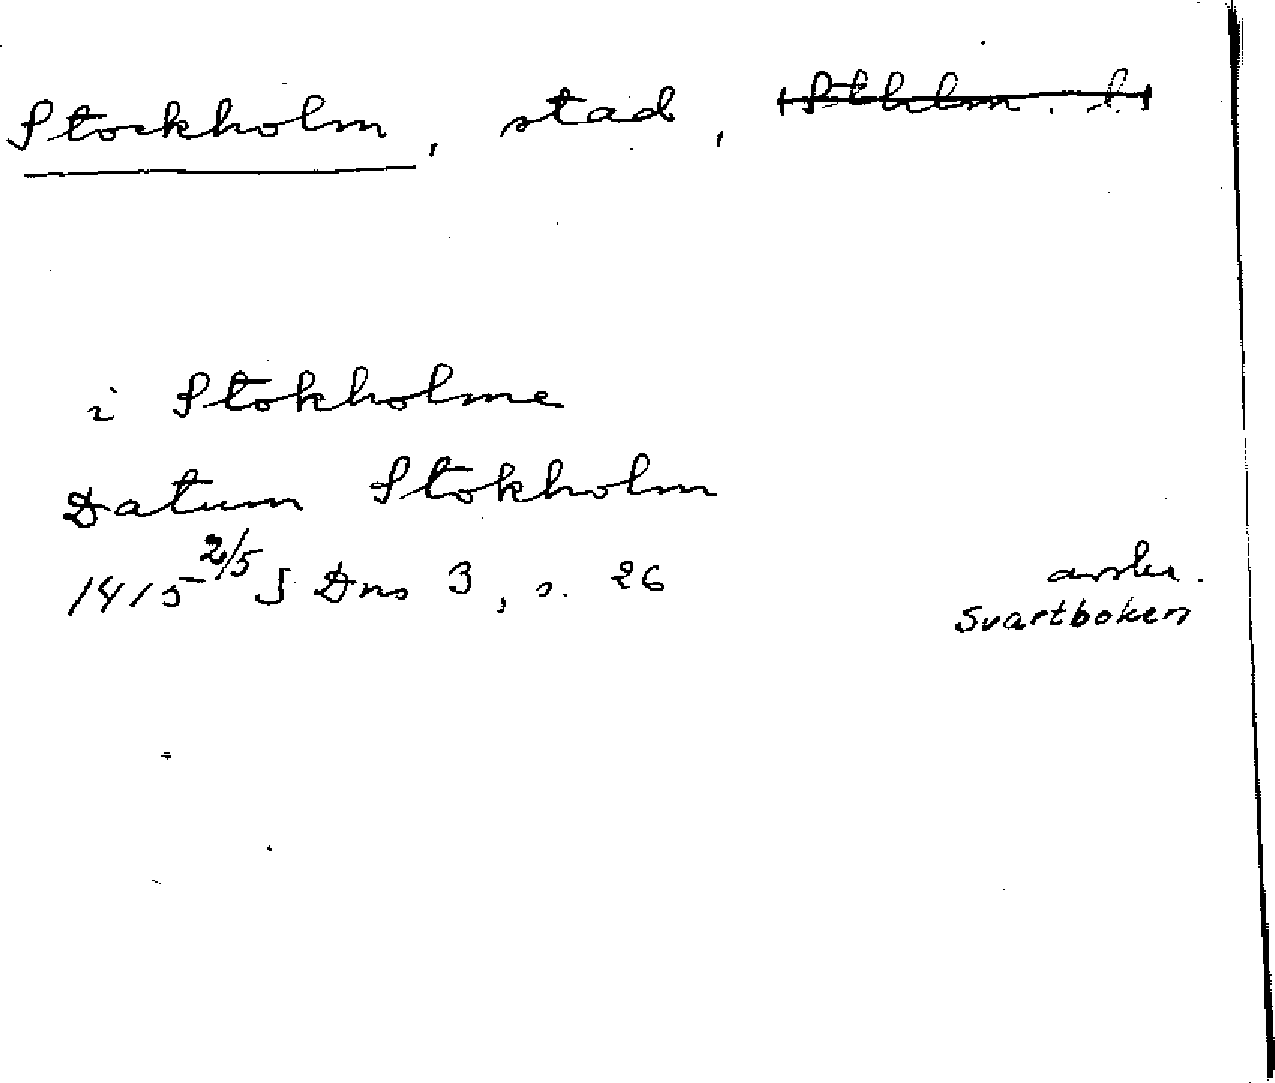 Stockholm, stad, Sthlm. l.
i Stokholme
Datum Stokholm
1415 2/5 J Dns 3, s. 26
avskr.
Svartboken